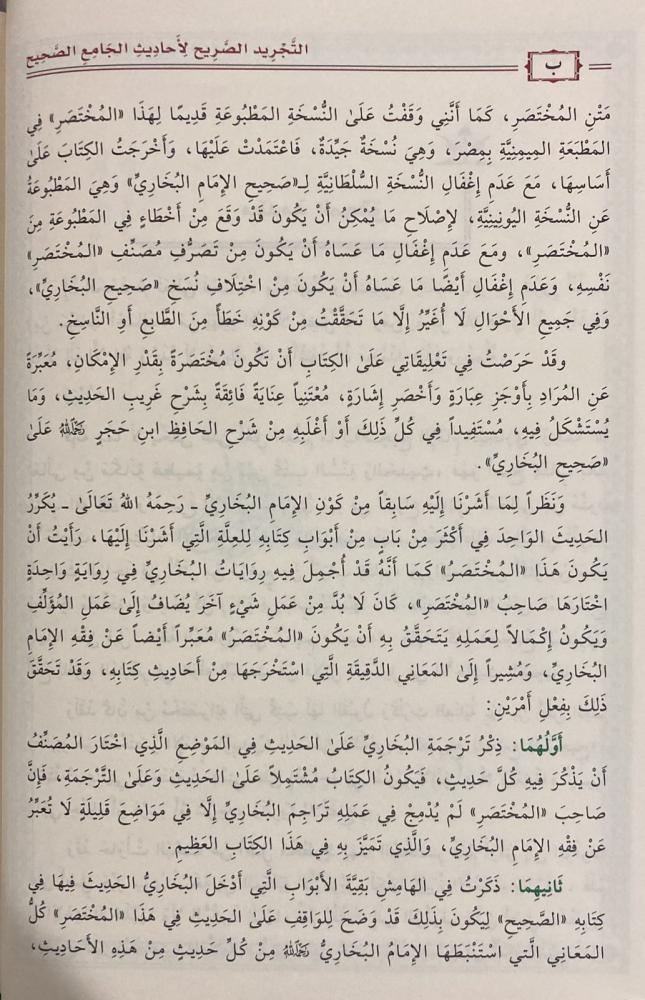 التَّجْرِيد الصَّرِيح لِأَحادِيثِ الجَامِعِ الصَّحِيح
ب
مَتْنِ المُخْتَصَرِ، كَمَا أَنَّنِي وَقَفْتُ عَلَىٰ النُّسْخَةِ المَطْبُوعَةِ قَدِيمًا لِهَذَا «المُخْتَصَرِ» فِي
المَطْبَعَةِ المِيمَنِيَّةِ بِمِصْرَ، وَهِيَ نُسْخَةٌ جَيِّدَةٌ، فَاعْتَمَدْتُ عَلَيْهَا، وَأَخْرَجَتُ الكِتَابَ عَلَىٰ
أَسَاسِهَا، مَعَ عَدَمِ إِغْفَالِ النُّسْخَةِ السُّلْطَانِيَّةِ لِـ«صَحِيحِ الإِمَامِ البُخَارِيِّ» وَهِيَ المَطْبُوعَةُ
عَنِ النُّسْخَةِ اليُونِينِيَّةِ، لِإِصْلَاحِ مَا يُمْكِنُ أَنْ يَكُونَ قَدْ وَقَعَ مِنْ أَخْطَاءٍ فِي المَطْبُوعَةِ مِنَ
«المُخْتَصَرِ»، ومَعَ عَدَمِ إِغْفَالِ مَا عَسَاهُ أَنْ يَكُونَ مِنْ تَصَرُّفِ مُصَنِّفِ «المُخْتَصَرِ»
نَفْسِهِ، وَعَدَمِ إِغْفَالِ أَيْضًا مَا عَسَاهُ أَنْ يَكُونَ مِنْ اخْتِلَافِ نُسَخِ «صَحِيحِ البُخَارِيِّ»،
وَفِي جَمِيعِ الأَحْوَالِ لَا أُغَيِّرُ إِلَّا مَا تَحَقَّقْتُ مِنْ كَوْنِهِ خَطَأً مِنَ الطَّابِعِ أَوِ النَّاسِخِ.
وقَدْ حَرَصْتُ فِي تَعْلِيقَاتِي عَلَىٰ الكِتَابِ أَنْ تَكُونَ مُخْتَصَرَةً بِقَدْرِ الإِمْكَانِ، مُعَبِّرَةً
عَنِ المُرَادِ بِأَوْجَزِ عِبَارَةٍ وَأَخْصَرِ إِشَارَةٍ، مُعْتَنِياً عِنَايَةً فَائِقَةً بِشَرْحِ غَرِيبِ الحَدِيثِ، وَمَا
يُسْتَشْكَلُ فِيهِ، مُسْتَفِيداً فِي كُلِّ ذَلِكَ أَوْ أَغْلَبِهِ مِنْ شَرْحِ الحَافِظِ ابنِ حَجَرٍ رَحِمَهُ اللهُ عَلَىٰ
«صَحِيحِ البُخَارِيِّ».
وَنَظَراً لِمَا أَشَرْنَا إِلَيْهِ سَابِقاً مِنْ كَوْنِ الإِمَامِ البُخَارِيِّ ـ رَحِمَهُ اللهُ تَعَالَىٰ ـ يُكَرِّرُ
الحَدِيثَ الوَاحِدَ فِي أَكْثَرَ مِنْ بَابٍ مِنْ أَبْوَابِ كِتَابِهِ لِلعِلَّةِ الَّتِي أَشَرْنَا إِلَيْهَا، رَأَيْتُ أَنْ
يَكُونَ هَذَا «المُخْتَصَرُ» كَمَا أَنَّهُ قَدْ أُجْمِلَ فِيهِ رِوَايَاتُ البُخَارِيِّ فِي رِوَايَةٍ وَاحِدَةٍ
اخْتَارَهَا صَاحِبُ «المُخْتَصَرِ»، كَانَ لَا بُدَّ مِنْ عَمَلِ شَيْءٍ آخَرَ يُضَافُ إِلَىٰ عَمَلِ المُؤَلِّفِ
وَيَكُونُ إِكْمَالاً لِعَمَلِهِ يَتَحَقَّقُ بِهِ أَنْ يَكُونَ «المُخْتَصَرُ» مُعَبِّراً أَيْضاً عَنْ فِقْهِ الإِمَامِ
البُخَارِيِّ، وَمُشِيراً إِلَىٰ المَعَانِي الدَّقِيقَةِ الَّتِي اسْتَخْرَجَهَا مِنْ أَحَادِيثِ كِتَابِهِ، وَقَدْ تَحَقَّقَ
ذَلِكَ بِفِعْلِ أَمْرَيْنِ:
أَوَّلُهُمَا: ذِكْرُ تَرْجَمَةِ البُخَارِيِّ عَلَىٰ الحَدِيثِ فِي المَوْضِعِ الَّذِي اخْتَارَ المُصَنِّفُ
أَنْ يَذْكُرَ فِيهِ كُلَّ حَدِيثٍ، فَيَكُونُ الكِتَابُ مُشْتَمِلاً عَلَىٰ الحَدِيثِ وَعَلَىٰ التَّرْجَمَةِ، فَإِنَّ
صَاحِبَ «المُخْتَصَرِ» لَمْ يُدْمِجْ فِي عَمَلِهِ تَرَاجِمَ البُخَارِيِّ إِلَّا فِي مَوَاضِعَ قَلِيلَةٍ لَا تُعَبِّرُ
عَنْ فِقْهِ الإِمَامِ البُخَارِيِّ، وَالَّذِي تَمَيَّزَ بِهِ فِي هَذَا الكِتَابِ العَظِيمِ.
ثَانِيهِمَا: ذَكَرْتُ فِي الهَامِشِ بَقِيَّةَ الأَبْوَابِ الَّتِي أَدْخَلَ البُخَارِيُّ الحَدِيثَ فِيهَا فِي
كِتَابِهِ «الصَّحِيحِ» لِيَكُونَ بِذَلِكَ قَدْ وَضَحَ لِلوَاقِفِ عَلَىٰ الحَدِيثِ فِي هَذَا «المُخْتَصَرِ» كُلُّ
المَعَانِي الَّتي اسْتَنْبَطَهَا الإِمَامُ البُخَارِيُّ رَحِمَهُ اللهُ مِنْ كُلِّ حَدِيثٍ مِنْ هَذِهِ الأَحَادِيثِ،